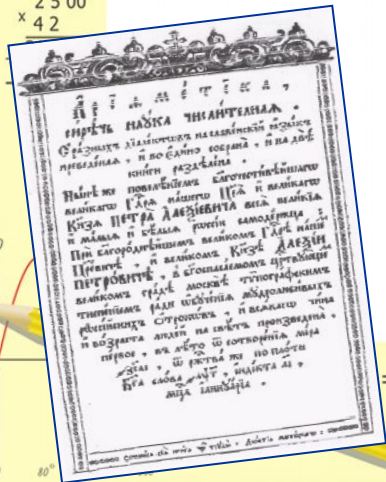 2 5 00
x
4 2
Арїѳметїка,
сирѣчь наѹка числителная.
С разныхъ дїалектѡвъ на славенскїй ѧзыкъ
преведеная, и во едино собрана, и на двѣ
книги раздѣлена.
Нынѣ же повелѣнїемъ благочестивѣйшагѡ
великагѡ Гдⷭ҇рѧ нашегѡ Цр҃ѧ и великагѡ
Кн҃зѧ ПЕТРА Алеѯїевича всеѧ великїѧ
и малыѧ и бѣлыѧ рѡссїи самодержца:
При благороднѣйшемъ великомъ Гдⷭ҇рѣ нашемъ
Цр҃евичѣ, и великомъ Кн҃зѣ Алеѯїи
Петровичѣ, в бг҃оспасаемомъ црⷭ҇твующемъ
великомъ градѣ москвѣ типографскимъ
тисненїемъ ради ѡбученїѧ мудролюбивыхъ
рѡссїйскихъ ѻтрокѡвъ, и всѧкагѡ чина
и возраста людей на свѣтъ произведена,
первое, в лѣто ѿ сотворенїѧ мїра
ѿ ржⷭ҇тва же по плоти
Бг҃а слова ҂аѱг, індїкта аі,
мцⷭ҇а іаннуарїа.
80°